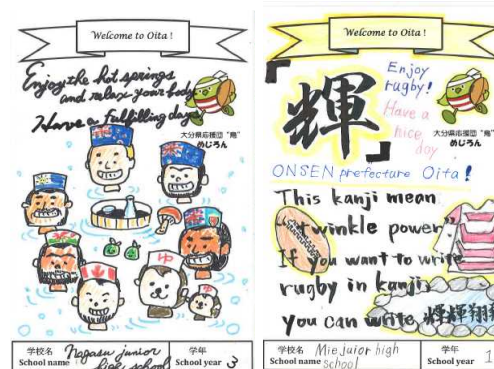 Welcome to Oita !
Enjoy the hot springs
and relax your body.
Have a fulfilling day!
大分県応援団“鳥”
めじろん
ゆ
学校名
School name
Nagasu junior
high school
学年
School year
3
Welcome to Oita !
「輝」
Enjoy
rugby!
Have a
nice
day
大分県応援団“鳥”
めじろん
ONSEN prefecture Oita!
This kanji mean
"twinkle power"
If you want to write
rugby in kanji,
you can write
学校名
School name
Mie juior high
school
学年
School year
1